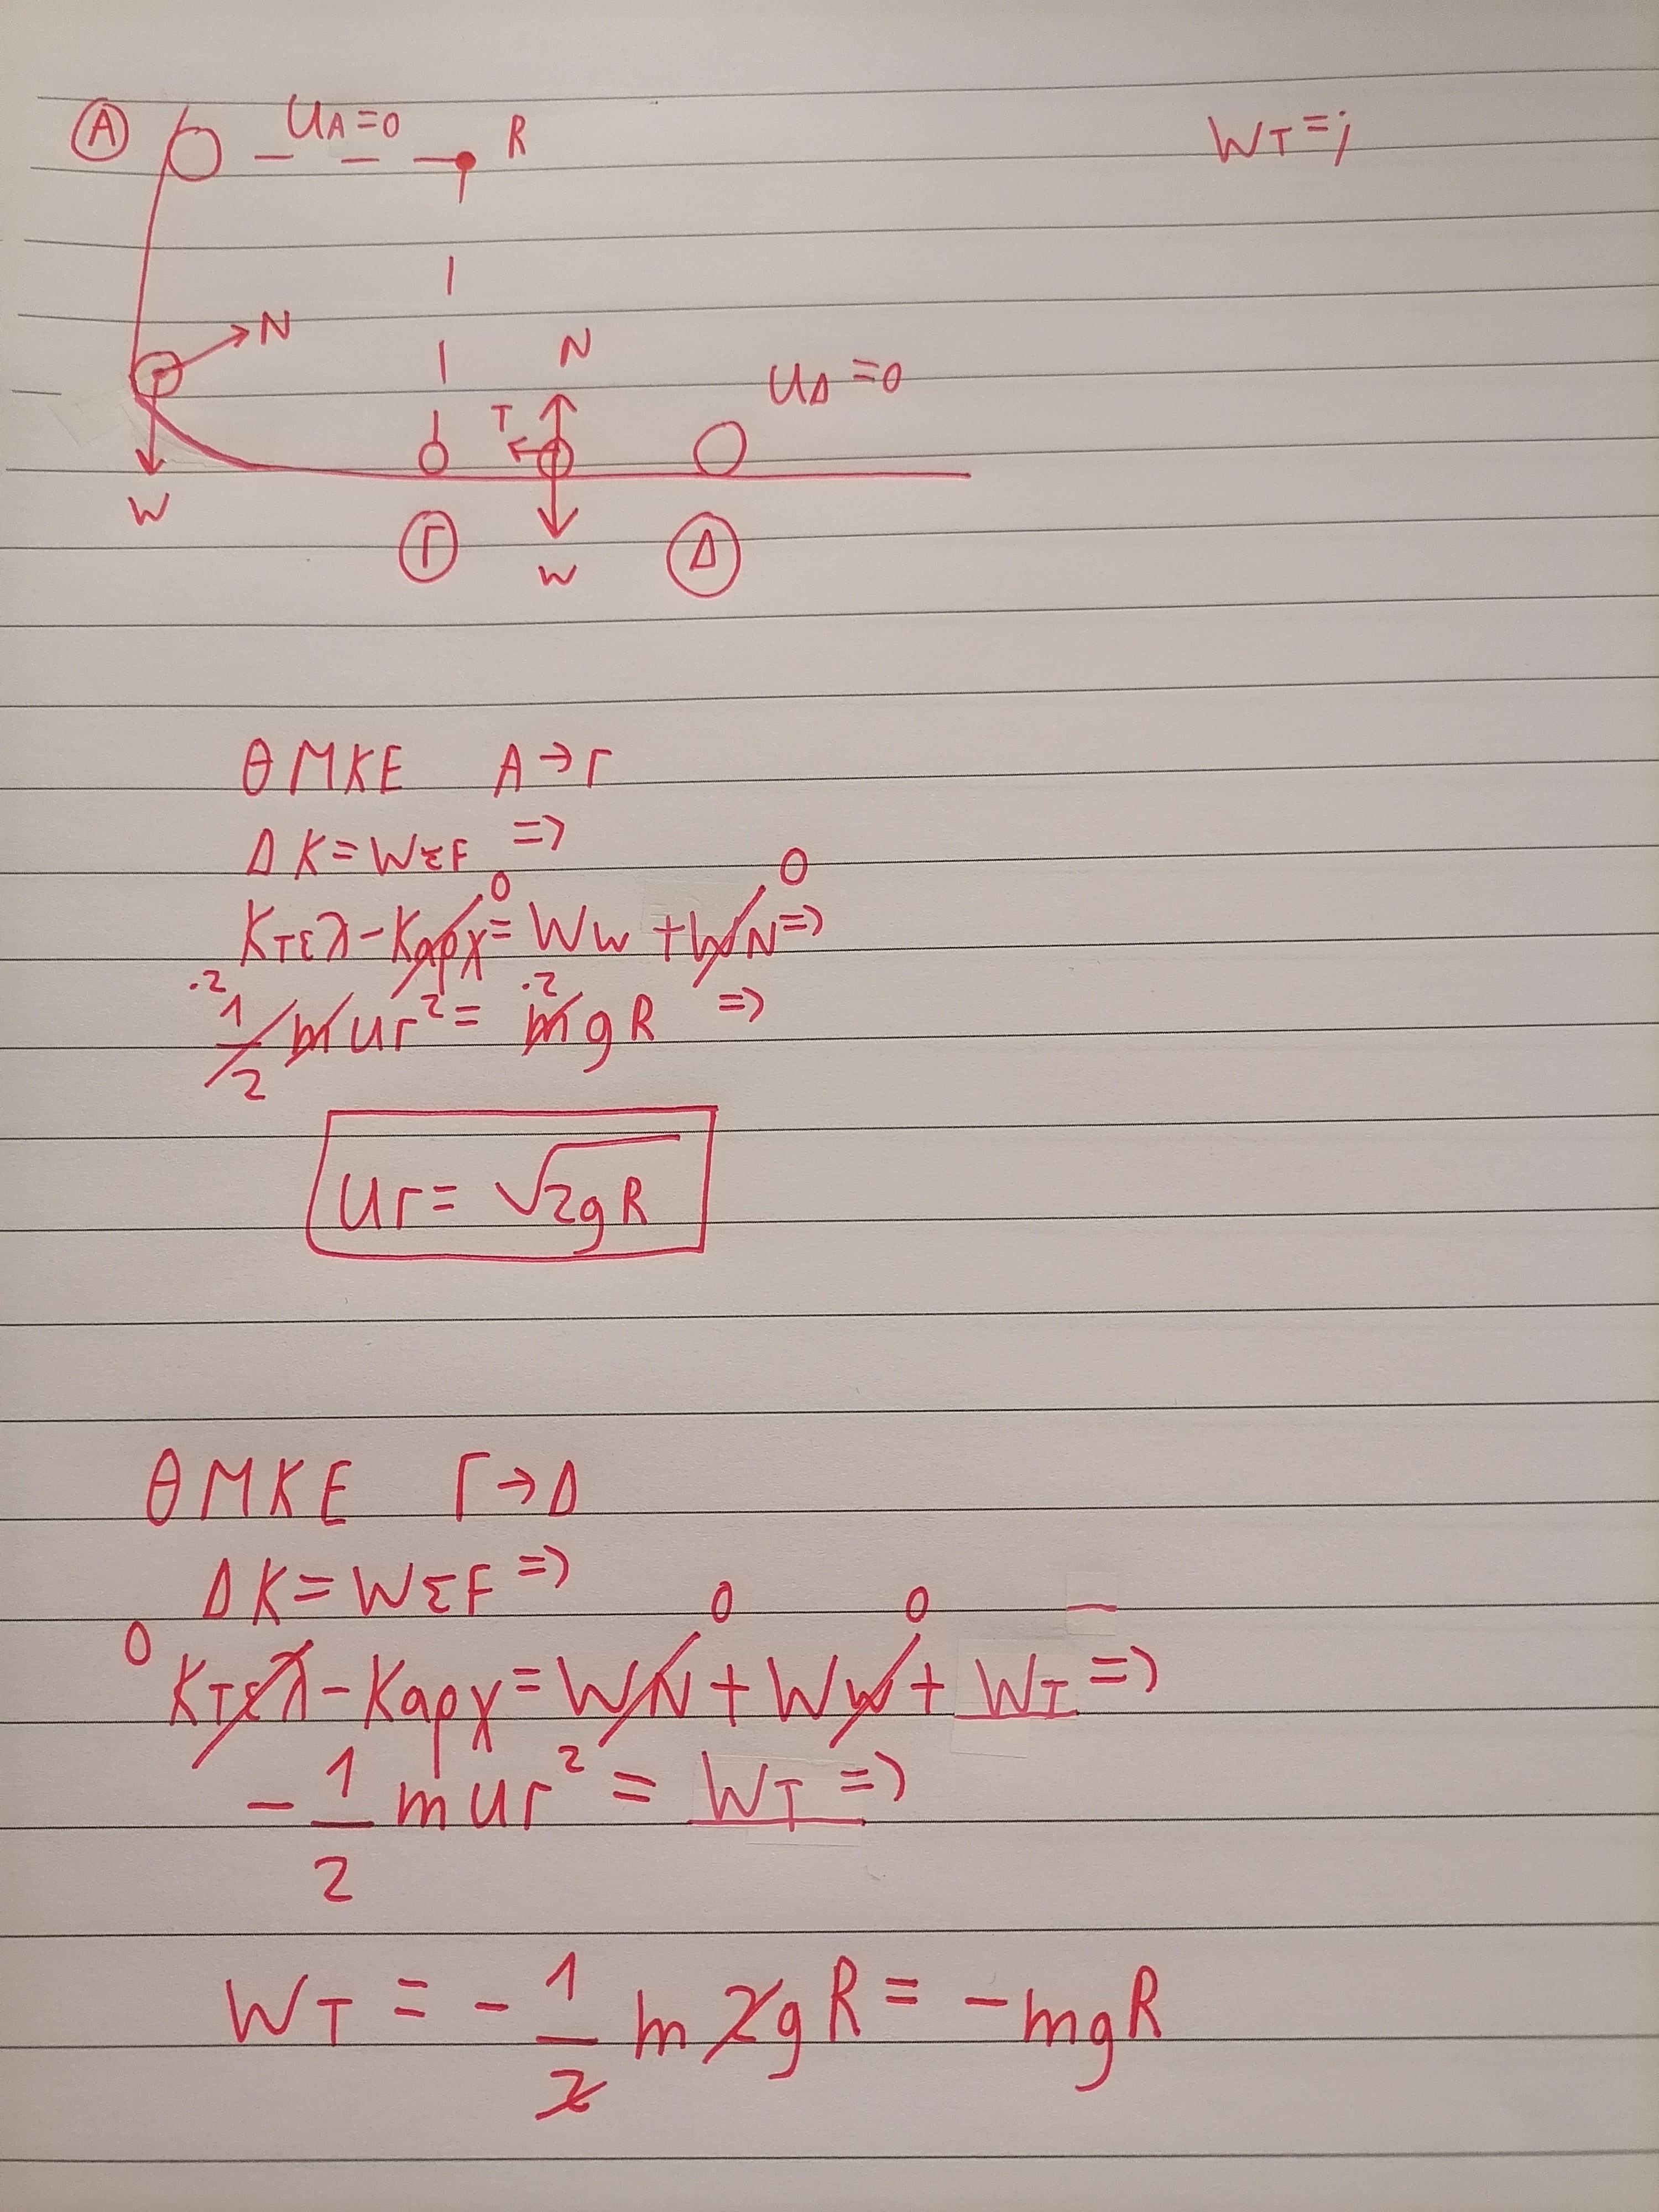 Α U_A=0 R W_T=;
N
N
T
U_Δ=0
W
Γ
W
Δ
ΘΜΚΕ Α→Γ
ΔΚ=W_ΣF =>
0 0
Κ_τελ-Κ_αρχ=W_w+W_N=>
·2 ·2
1/2 m u_Γ²= m g R =>
U_Γ=√2gR
ΘΜΚΕ Γ→Δ
ΔΚ=W_ΣF =>
0 0 0
Κ_τελ-Κ_αρχ=W_N+W_w+W_T=>
-1/2 m u_Γ² = W_T =>
W_T = -1/2 m 2gR = -mgR